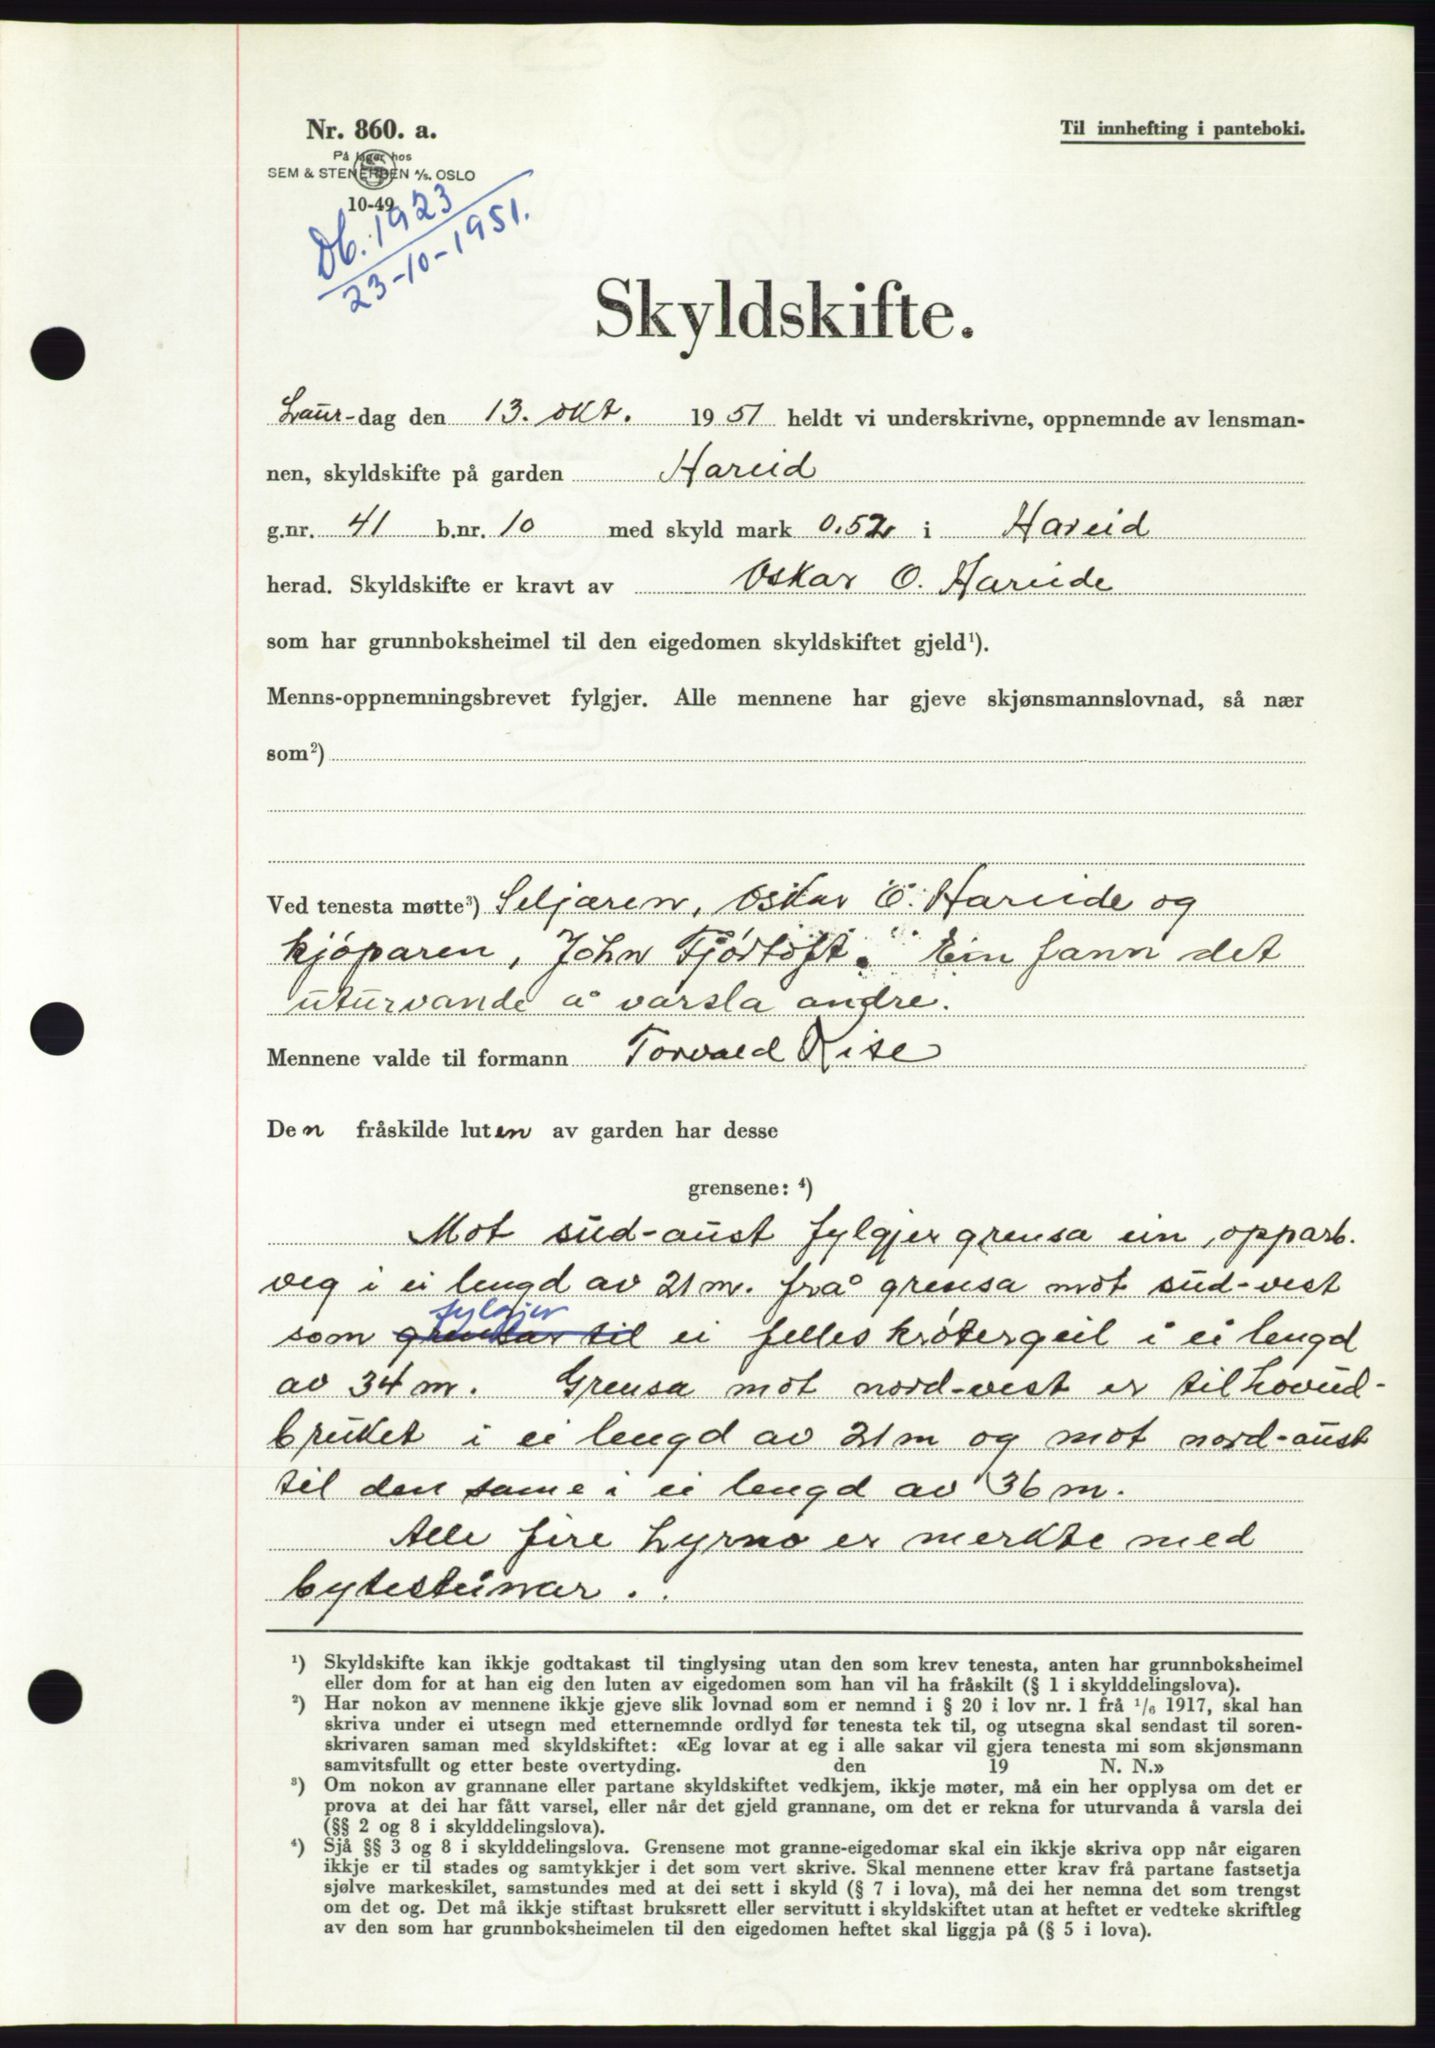 Nr. 860. a.
Til innhefting i panteboki.
På lager hos
SEM & STENERSEN A/S. OSLO
10-49
Db. 1923
23-10-1951.
Skyldskifte.
Laur-dag den 13. okt. 1951 heldt vi underskrivne, oppnemnde av lensman-
nen, skyldskifte på garden Hareid
g.nr. 41 b.nr. 10 med skyld mark 0,52 i Hareid
herad. Skyldskifte er kravt av Oskar O. Hareide
som har grunnboksheimel til den eigedomen skyldskiftet gjeld¹).
Menns-oppnemningsbrevet fylgjer. Alle mennene har gjeve skjønsmannslovnad, så nær
som²)
Ved tenesta møtte³) Seljaren, Oskar O. Hareide og
kjøparen, John Fjørtoft. Ein fann det
uturvande å varsla andre.
Mennene valde til formann Torvald Rise
Den fråskilde luten av garden har desse
grensene: ⁴)
Mot sud-aust fylgjer grensa ein opparb.
veg i ei lengd av 21 m. frå grensa mot sud-vest
fylgjer
som grensar til ei felles krøtergeil i ei lengd
av 34 m. Grensa mot nord-vest er til hovud-
bruket i ei lengd av 21 m og mot nord-aust
til den same i ei lengd av 36 m.
Alle fire hyrno er merkte med
bytesteinar.
¹) Skyldskifte kan ikkje godtakast til tinglysing utan den som krev tenesta, anten har grunnboksheimel
eller dom for at han eig den luten av eigedomen som han vil ha fråskilt (§ 1 i skylddelingslova).
²) Har nokon av mennene ikkje gjeve slik lovnad som er nemnd i § 20 i lov nr. 1 frå 1/6 1917, skal han
skriva under ei utsegn med etternemnde ordlyd før tenesta tek til, og utsegna skal sendast til soren-
skrivaren saman med skyldskiftet: «Eg lovar at eg i alle sakar vil gjera tenesta mi som skjønsmann
samvitsfullt og etter beste overtyding. den 19 N. N.»
³) Om nokon av grannane eller partane skyldskiftet vedkjem, ikkje møter, må ein her opplysa om det er
prova at dei har fått varsel, eller når det gjeld grannane, om det er rekna for uturvanda å varsla dei
(§§ 2 og 8 i skylddelingslova).
⁴) Sjå §§ 3 og 8 i skylddelingslova. Grensene mot granne-eigedomar skal ein ikkje skriva opp når eigaren
ikkje er til stades og samtykkjer i det som vert skrive. Skal mennene etter krav frå partane fastsetja
sjølve markeskilet, samstundes med at dei sett i skyld (§ 7 i lova), må dei her nemna det som trengst
om det og. Det må ikkje stiftast bruksrett eller servitutt i skyldskiftet utan at heftet er vedteke skriftleg
av den som har grunnboksheimelen til den eigedomen heftet skal liggja på (§ 5 i lova).